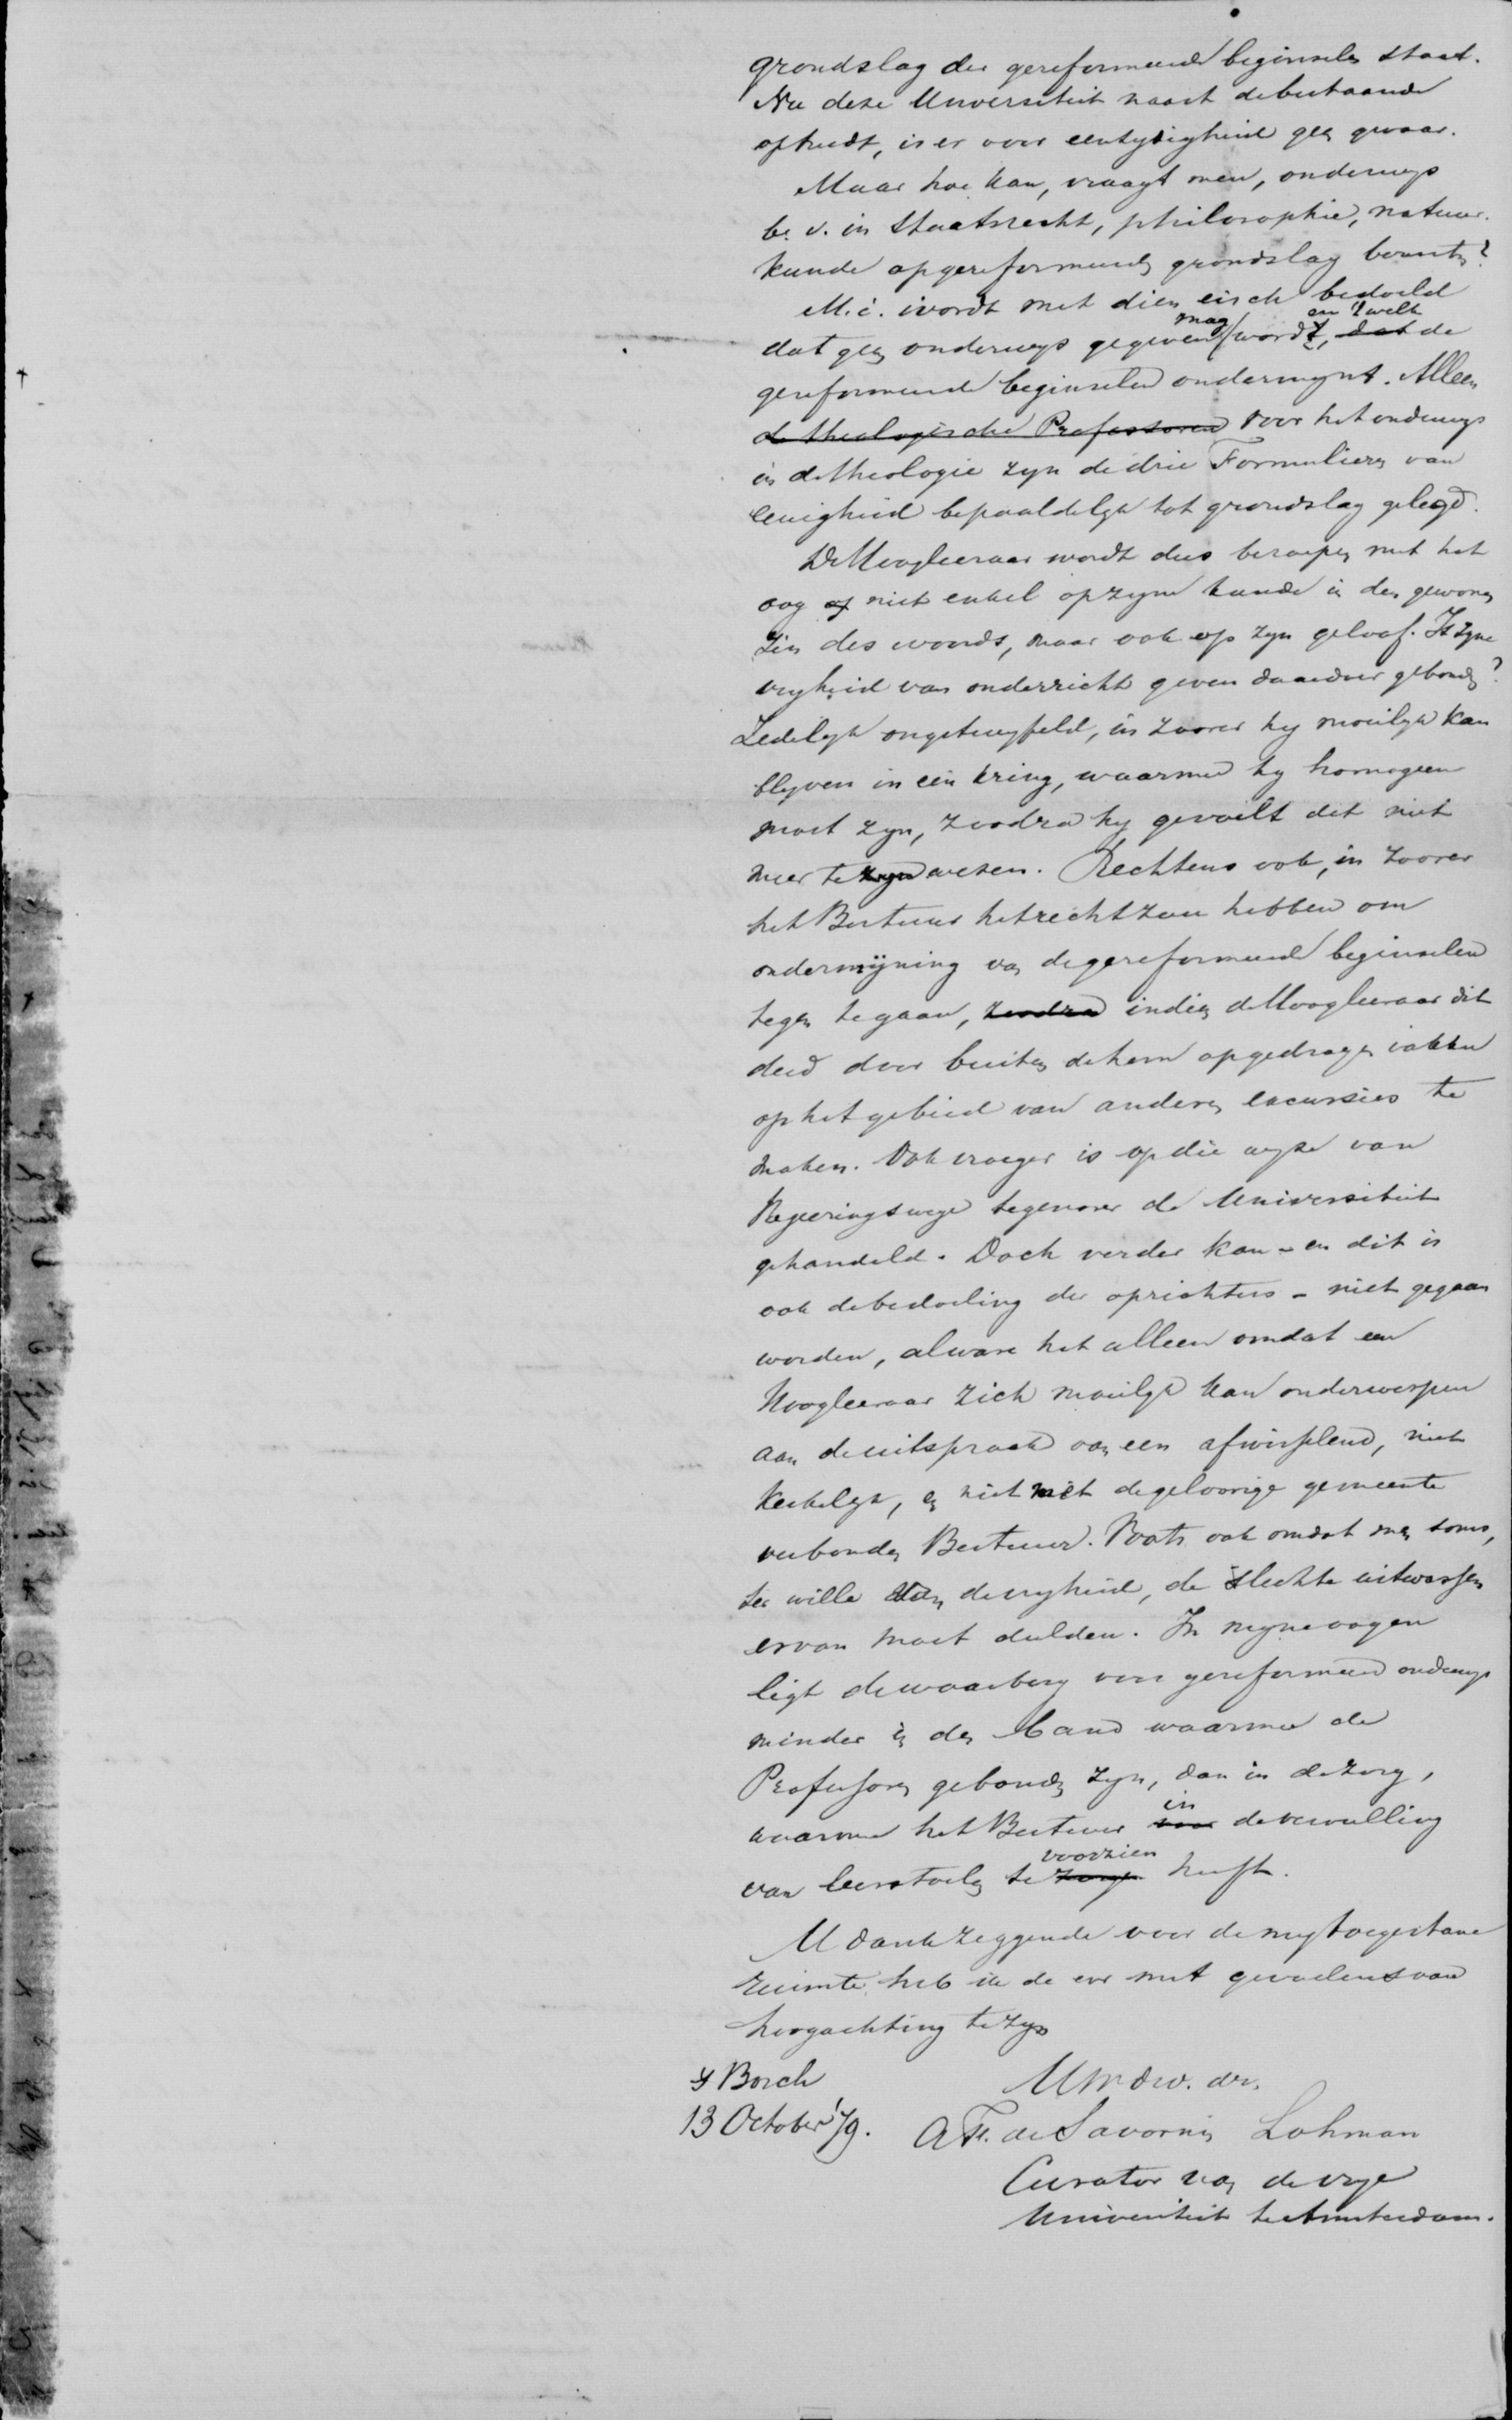 grondslag der gereformeerde beginselen staat.
Nu deze Universiteit naast de bestaande
optreedt, is er voor eenzydigheid geen gevaar.
Maar hoe kan, vraagt men, onderwys
b. v. in Staatsrecht, philosophie, natuur-
kunde op gereformeerden grondslag berusten?
M. i. wordt met dien eisch bedoeld
dat geen onderwys gegeven mag wordt, dat en 't welk de
gereformeerde beginselen ondermynt. Alleen
de theologische Professoren voor het onderwys
in de theologie zyn de drie Formulieren van
eenigheid bepaaldelyk tot grondslag gelegd.
De Hoogleeraar wordt dus beroepen met het
oog op niet enkel op zyne kunde in den gewonen
zin des woords, maar ook op zyn geloof. Is zyne
vryheid van onderricht geven daardoor gebonden?
Zedelyk ongetwyfeld, in zoover hy moeilyk kan
blyven in een kring, waarmee hy homogeen
moet zyn, zoodra hy gevoelt dit niet
meer te zyn wezen. Rechtens ook, in zoover
het Bestuur het recht zou hebben om
ondermijning van de gereformeerde beginselen
tegen te gaan, zoodra indien de Hoogleeraar dit
deed door buiten de hem opgedragen vakken
op het gebied van anderen excursies te
maken. Ook vroeger is op die wyze van
Regeeringswege tegenover de Universiteit
gehandeld. Doch verder kan - en dit is
ook de bedoeling der oprichters - niet gegaan
worden, al ware het alleen omdat een
Hoogleeraar zich moeilyk kan onderwerpen
aan de uitspraak van een afwisselend, niet
kerkelyk, en niet met de geloovige gemeente
verbonden Bestuur. Voorts ook omdat men soms,
ter wille van de vryheid, de slechte uitwassen
ervan moet dulden. In myne oogen
ligt de waarborg voor gereformeerd onderwys
minder in den band waarmee de
Professoren gebonden zyn, dan in de zorg,
waarmee het Bestuur voor in de vervulling
van leerstoelen te zorgen voorzien heeft.
U dankzeggende voor de my toegestane
ruimte heb ik de eer met gevoelens van
hoogachting te zyn
's Bosch
13 October '79.
Uw dw. dr.
A F. de Savornin Lohman
Curator van de vrye
Universiteit te Amsterdam.